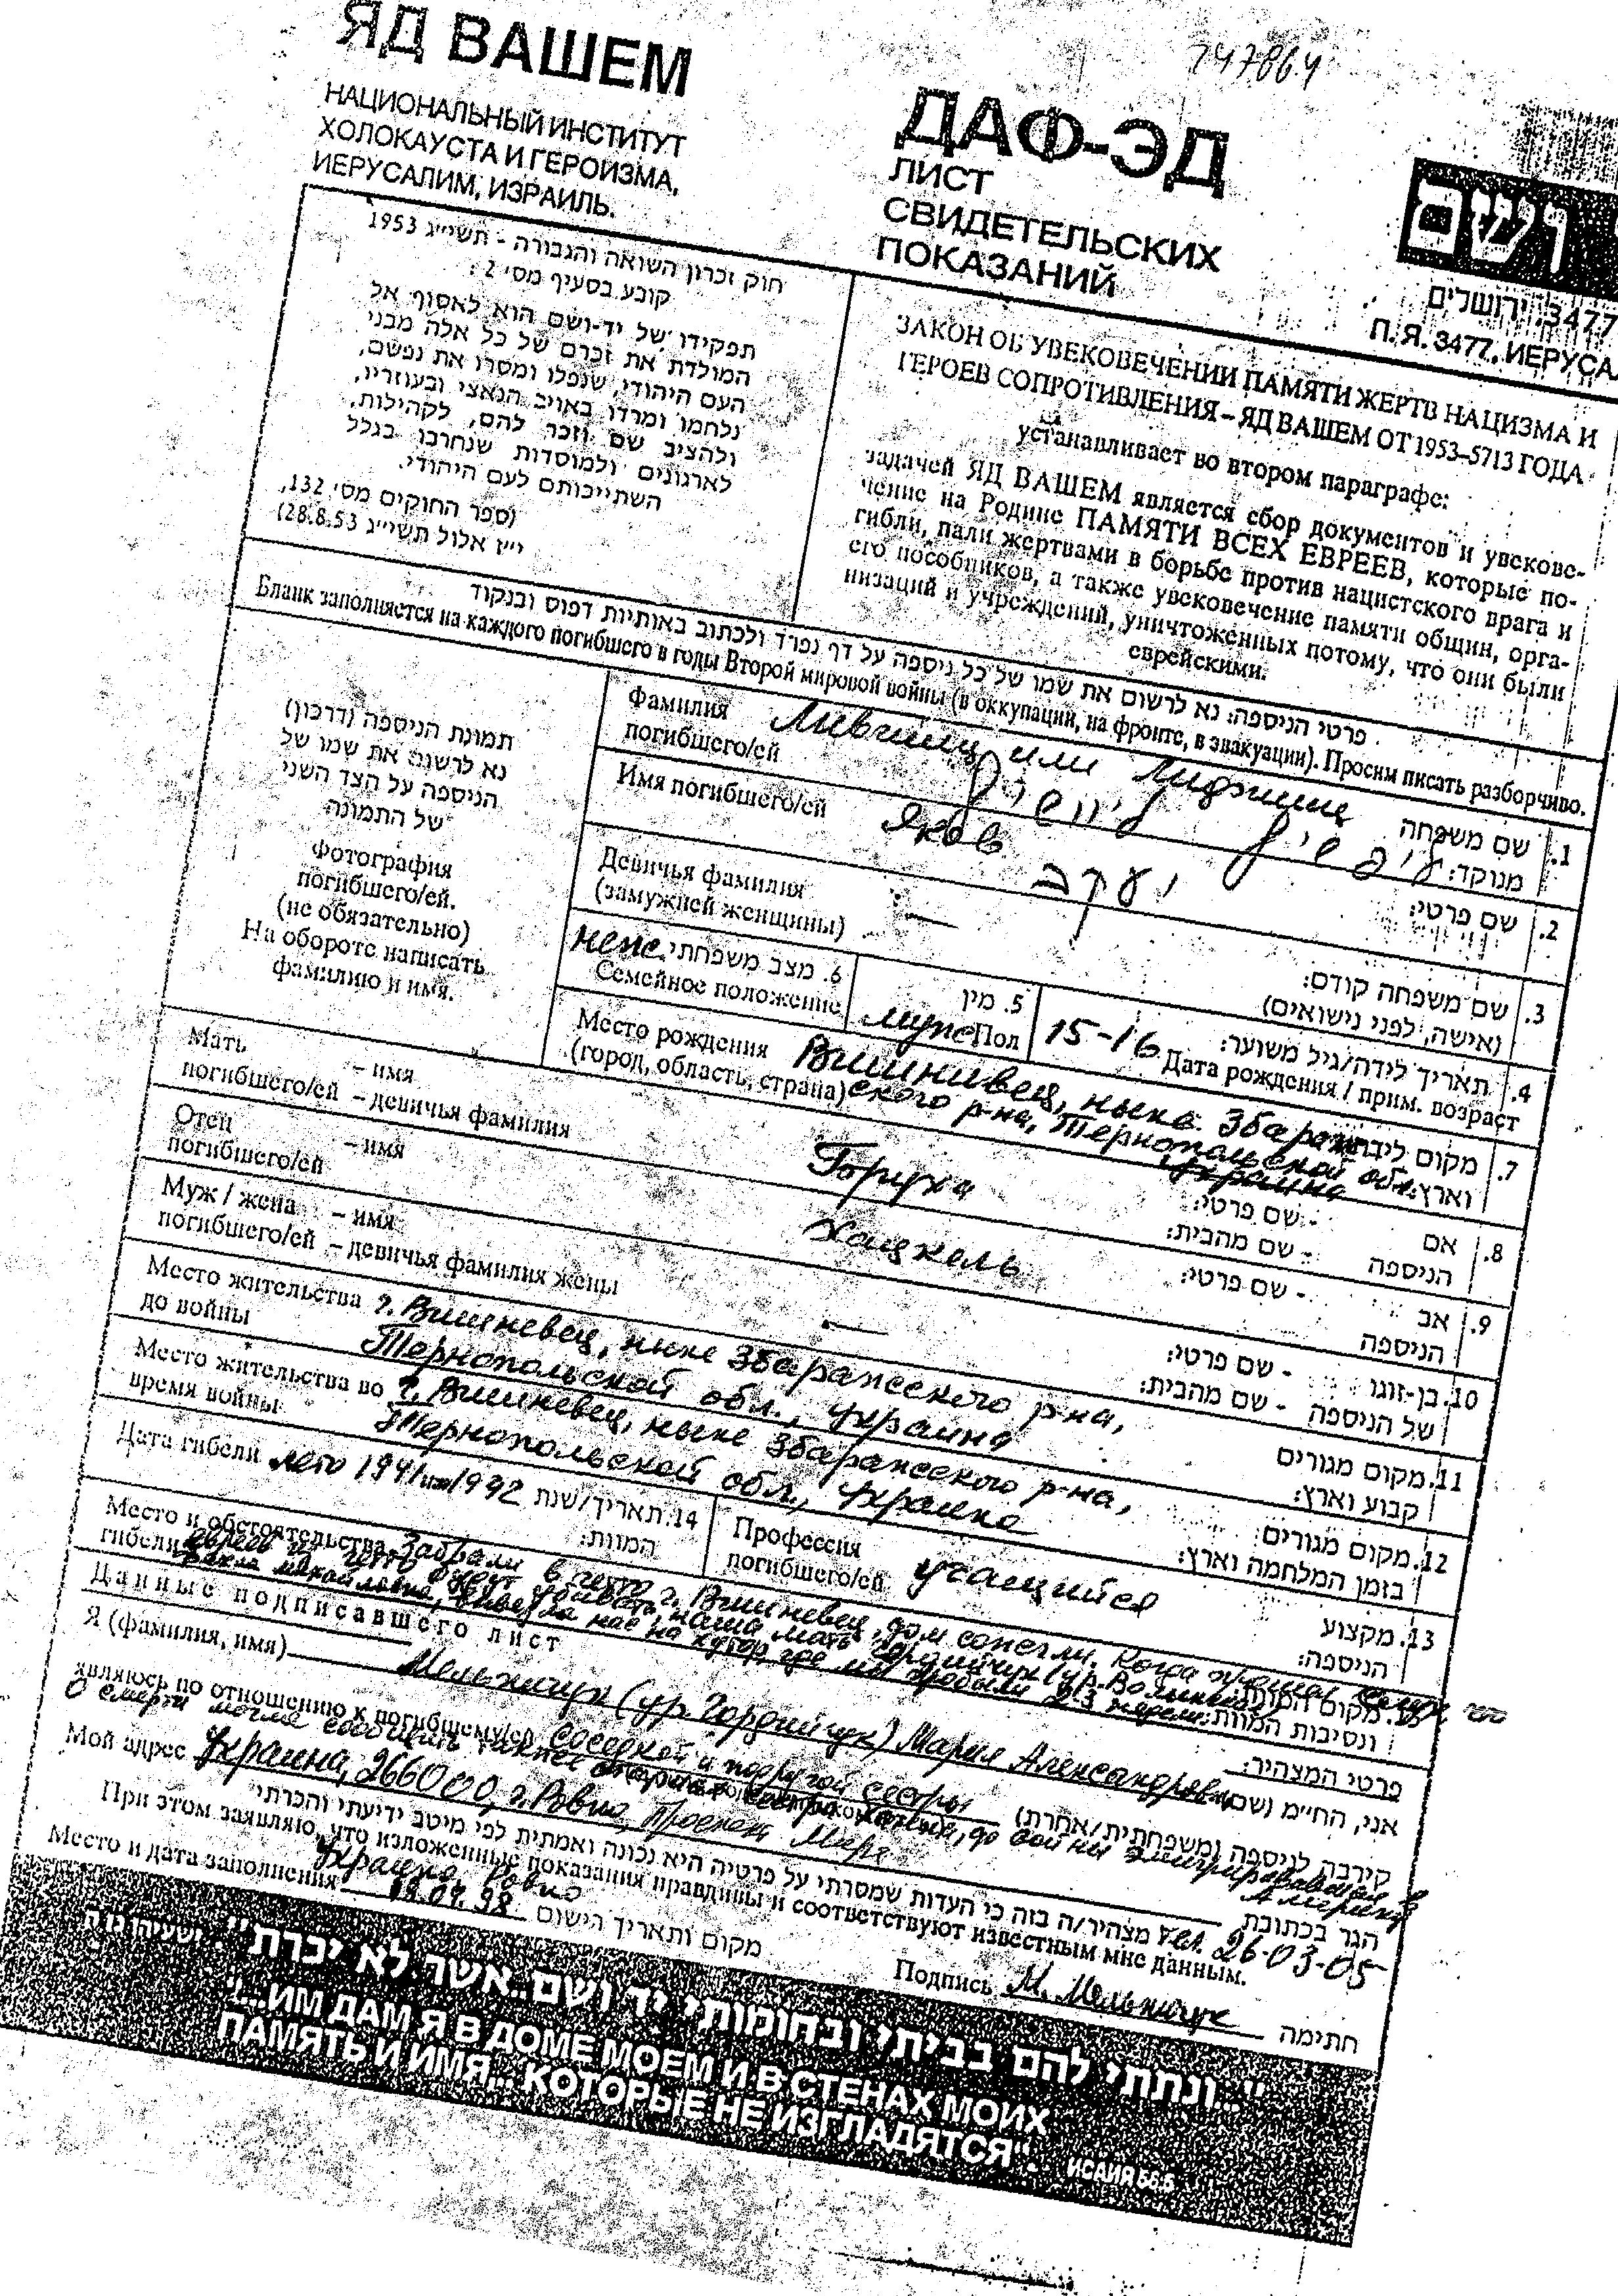 247864
ЯД ВАШЕМ
НАЦИОНАЛЬНЫЙ ИНСТИТУТ
ХОЛОКАУСТА И ГЕРОИЗМА,
ИЕРУСАЛИМ, ИЗРАИЛЬ.
ДАФ-ЭД
ЛИСТ
СВИДЕТЕЛЬСКИХ
ПОКАЗАНИЙ
ושם
3477, ירושלים
П. Я. 3477, ИЕРУСА
חוק זכרון השואה והגבורה - תשי״ג 1953
קובע בסעיף מס׳ 2 :
תפקידו של יד-ושם הוא לאסוף אל
המולדת את זכרם של כל אלה מבני
העם היהודי, שנפלו ומסרו את נפשם,
נלחמו ומרדו באויב הנאצי ובעוזריו,
ולהציב שם וזכר להם, לקהילות,
לארגונים ולמוסדות שנחרבו בגלל
השתייכותם לעם היהודי.
(ספר החוקים מס׳ 132,
י״ז אלול תשי״ג 28.8.53)
ЗАКОН ОБ УВЕКОВЕЧЕНИИ ПАМЯТИ ЖЕРТВ НАЦИЗМА И
ГЕРОЕВ СОПРОТИВЛЕНИЯ – ЯД ВАШЕМ ОТ 1953–5713 ГОДА
устанавливает во втором параграфе:
задачей ЯД ВАШЕМ является сбор документов и увекове-
чение на Родине ПАМЯТИ ВСЕХ ЕВРЕЕВ, которые по-
гибли, пали жертвами в борьбе против нацистского врага и
его пособников, а также увековечение памяти общин, орга-
низаций и учреждений, уничтоженных потому, что они были
еврейскими.
פרטי הניספה: נא לרשום את שמו של כל ניספה על דף נפרד ולכתוב באותיות דפוס ובנקוד
Бланк заполняется на каждого погибшего в годы Второй мировой войны (в оккупации, на фронте, в эвакуации). Просим писать разборчиво.
תמונת הניספה (דרכון)
נא לרשום את שמו של
הניספה על הצד השני
של התמונה
Фотография
погибшего/ей.
(не обязательно)
На обороте написать
фамилию и имя.
Фамилия погибшего/ей Лившиц или Лифшиц 1. שם משפחה מנוקד:
Имя погибшего/ей Яков יעקב 2. שם פרטי:
Девичья фамилия (замужней женщины) — 3. שם משפחה קודם: (אישה, לפני נישואים)
6. מצב משפחתי Семейное положение 5. מין Пол 15-16 4. תאריך לידה/גיל משוער: Дата рождения / прим. возраст
Место рождения (город, область, страна) Вишнивец, ныне Збараж-
ского р-на, Тернопольской обл. Украина 7. מקום לידה וארץ:
Мать погибшего/ей – имя – девичья фамилия 8. אם הניספה - שם פרטי: - שם מהבית:
Отец погибшего/ей – имя Хацкель 9. אב הניספה - שם פרטי:
Муж / жена погибшего/ей – имя – девичья фамилия жены — 10. בן-זוגו של הניספה - שם פרטי: - שם מהבית:
Место жительства до войны г. Вишневец, ныне Збаражского р-на,
Тернопольской обл., Украина 11. מקום מגורים קבוע וארץ:
Место жительства во время войны г. Вишневец, ныне Збаражского р-на,
Тернопольской обл., Украина 12. מקום מגורים בזמן המלחמה וארץ:
Дата гибели лето 1941 или 1942 14. תאריך/שנת המוות: Профессия погибшего/ей учащийся 13. מקצוע הניספה:
Место и обстоятельства гибели Забрали в гетто г. Вишневец, дом сожгли. Когда
15. מקום המוות ונסיבות המוות:
Данные подписавшего лист פרטי המצהיר:
Я (фамилия, имя) Мельничук (ур. Гордийчук) Мария Александровна אני, הח״מ (שם)
являюсь по отношению к погибшему/ей соседкой и подругой сестры קירבה לניספה (משפחתית/אחרת)
Мой адрес Украина, 266000, г. Ровно, Проспект Мира הגר בכתובת
тел. 26-03-05
מצהיר/ה בזה כי העדות שמסרתי על פרטיה היא נכונה ואמתית לפי מיטב ידיעתי והכרתי
При этом заявляю, что изложенные показания правдивы и соответствуют известным мне данным.
Место и дата заполнения Украина, Ровно מקום ותאריך הישום Подпись М. Мельничук חתימה
"...ונתתי להם בביתי ובחומותי יד ושם...אשר לא יכרת" ישעיהו נו ה
"...ИМ ДАМ Я В ДОМЕ МОЕМ И В СТЕНАХ МОИХ
ПАМЯТЬ И ИМЯ... КОТОРЫЕ НЕ ИЗГЛАДЯТСЯ". ИСАИЯ 56.5